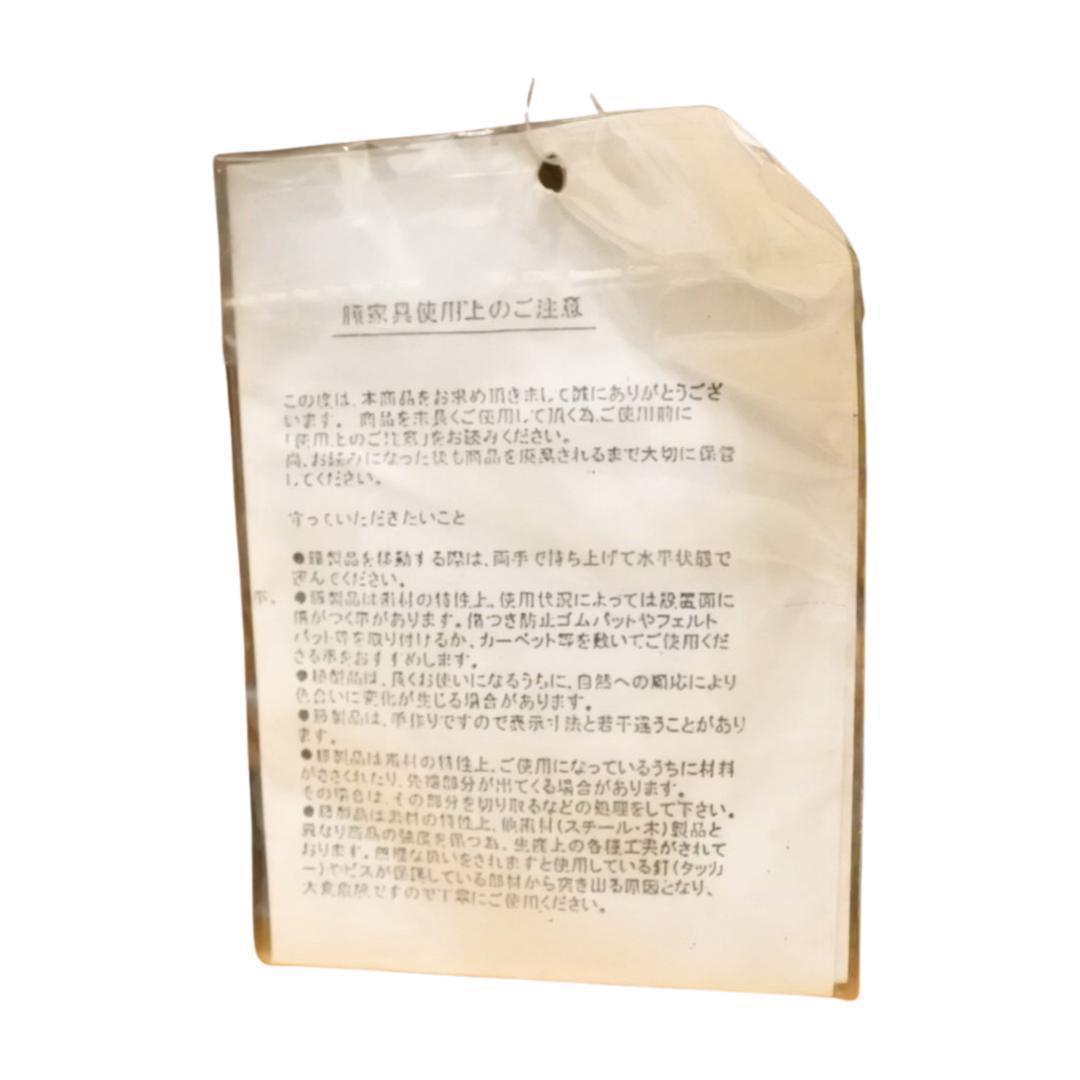 籐家具使用上のご注意
この度は、本商品をお求め頂きまして誠にありがとうござ
います。 商品を末長くご使用して頂く為、ご使用前に
「使用上のご注意」をお読みください。
尚、お読みになった後も商品を廃棄されるまで大切に保管
してください。
守っていただきたいこと
●籐製品を移動する際は、両手で持ち上げて水平状態で
運んでください。
●籐製品は素材の特性上、使用状況によっては設置面に
傷がつく事があります。傷つき防止ゴムパットやフェルト
パット等を取り付けるか、カーペット等を敷いてご使用くだ
さる事をおすすめします。
●籐製品は、長くお使いになるうちに、自然への順応により
色合いに変化が生じる場合があります。
●籐製品は、手作りですので表示寸法と若干違うことがあり
ます。
●籐製品は素材の特性上、ご使用になっているうちに材料
がささくれたり、先端部分が出てくる場合があります。
その場合は、その部分を切り取るなどの処理をして下さい。
●籐製品は素材の特性上、他素材(スチール・木)製品と
異なり商品の強度を保つ為、生産上の各種工夫がされて
おります。無理な扱いをされますと使用している釘(タッカ
ー)やビスが保護している部材から突き出る原因となり、
大変危険ですので丁寧にご使用ください。